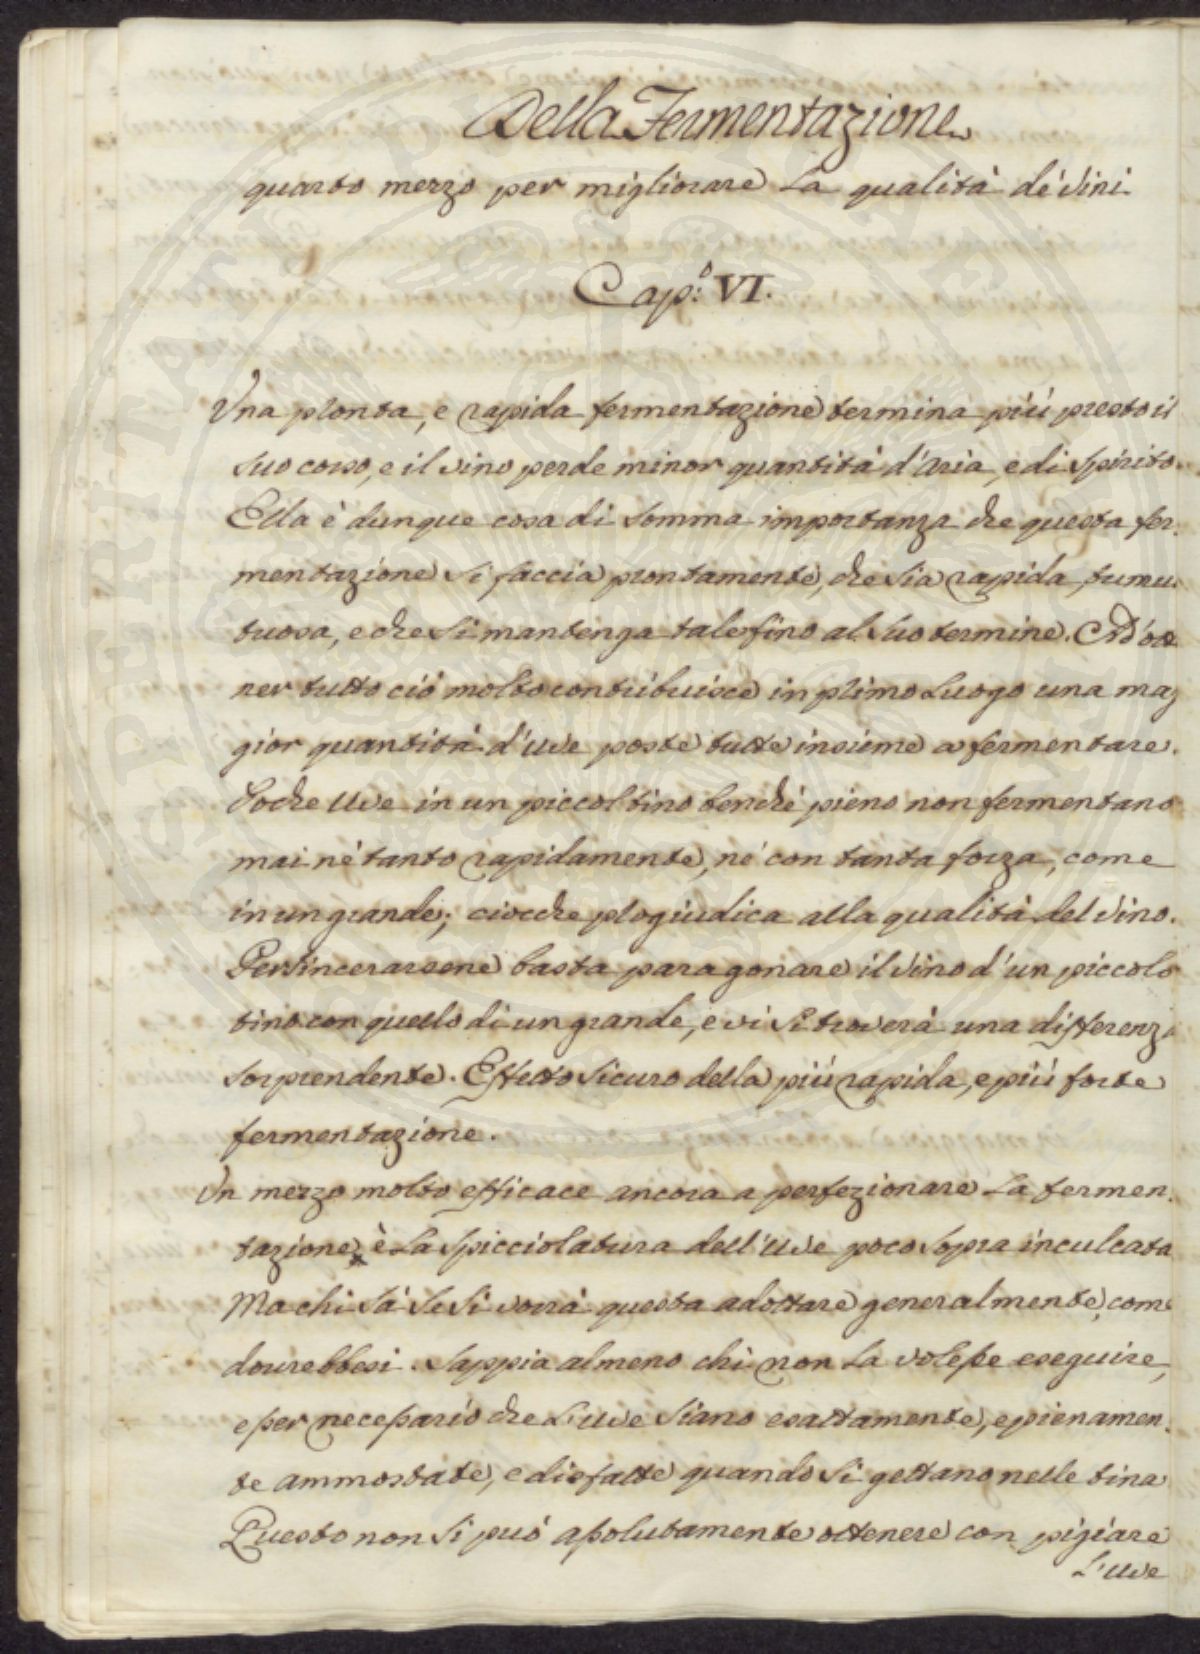 Della Fermentazione
quarto mezzo per migliorare la qualità de' Vini
Cap.º VI.
Una pronta, e rapida fermentazione termina più presto il
suo corso, e il vino perde minor quantità d'aria, e di Spirito.
Ella è dunque cosa di somma importanza che questa fer-
mentazione si faccia prontamente, che sia rapida, tumul-
tuosa, e che si mantenga tale fino al suo termine. Ad' otte
ner tutto ciò molto contribuisce in primo luogo una mag
gior quantità d'uve poste tutte insieme a fermentare.
Poche uve in un piccol tino benché pieno non fermentano
mai nè tanto rapidamente, né con tanta forza, come
in un grande; ciocche progiudica alla qualità del vino.
Per sincerarsene basta paragonare il vino d'un piccolo
tino con quello di un grande, e vi si troverà una differenza
sorprendente. Effetto sicuro della più rapida, e più forte
fermentazione.
Un mezzo molto efficace ancora a perfezionare la fermen-
tazione è la spicciolatura dell'uve poco sopra inculcata
Ma chi sà se si vorrà questa adottare generalmente, come
dovrebbesi. Sappia almeno chi non la volesse eseguire,
esser necessario che l'uve siano esattamente, e pienamen-
te ammostate, e disfatte quando si gettano nelle tina
Questo non si può assolutamente ottenere con pigiare
L'uve
SPERITATI PUBLICAE